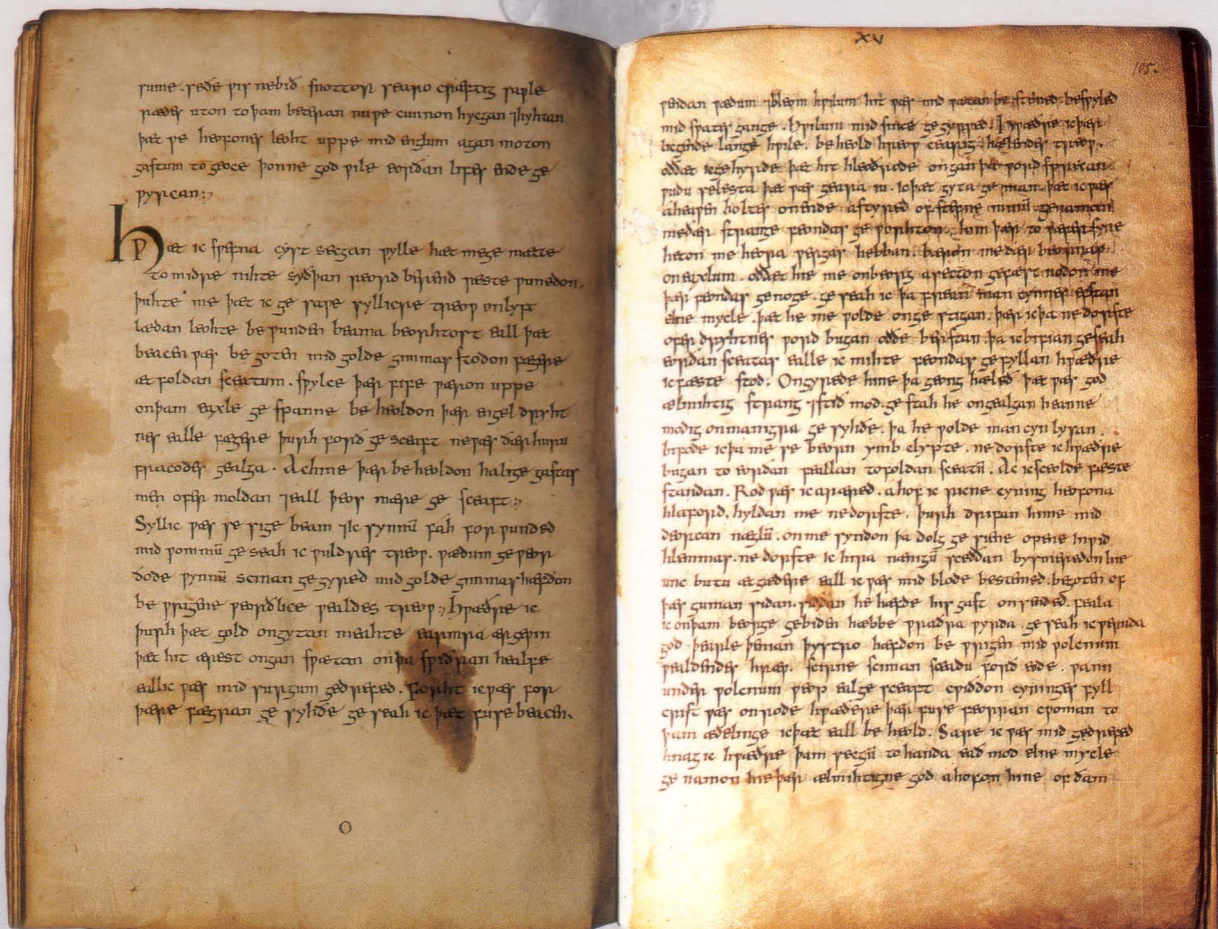 rume. rede ƿis nebið snottor searo cræftig saƿle
rædes uton to þam beteran nu ƿe cunnon hycgan ⁊hyhtan
þæt ƿe heofones leoht uppe mid englum agan moton
gastum to geoce þonne god ƿile eorðan lifes ende ge
ƿyrcan:,
HǷæt ic sƿefna cyst secgan ƿylle hæt mege mætte
to midre nihte syðþan reord berend reste ƿunedon.
þuhte me þæt ic ge saƿe syllicre treoƿ onlyft
lædan leohte be ƿunden beama beorhtost eall þæt
beacen ƿæs be goten mid golde gimmas stodon fægere
æt foldan sceatum. sƿylce þær fife ƿæron uppe
onþam eaxle ge spanne be heoldon þær engel dryht
nes ealle fægere þurh forð ge sceaft neƿæs ðær huru
fracodes gealga. Ac hine þær be heoldon halige gastas
men ofer moldan ⁊eall þeos mære ge sceaft:,
Syllic ƿæs se sige beam ⁊ic synnū fah for ƿunded
mid ƿommū ge seah ic ƿuldres treoƿ. ƿædum ge ƿeor
ðode ƿynnū scinan ge gyred mid golde gimmas hæfdon
be ƿrigene ƿeorðlice ƿealdes treoƿ:, hƿæðre ic
þurh þæt gold ongytan meahte earmra ærgeƿin
þæt hit ærest ongan sƿætan onþa sƿiðran healfe
eallic ƿæs mid surgum gedrefed. Forht icƿæs for
þære fægran ge syhðe ge seah ic þæt fuse beacen.
O
XV
105.
ƿendan ƿædum ⁊bleom hƿilum hit ƿæs mid ƿætan be stemed. besyled
mid sƿates gange. hƿilum mid since ge gyrƿed. hƿæðre icþær
licgende lange hƿile. be heold hreoƿ cearig hælendes treoƿ.
oððæt icgehyrde þæt hit hleoðrode ongan þa ƿord sprecan
ƿudu selesta þæt ƿæs geara iu. icþæt gyta ge man. þæt icƿæs
aheaƿen holtes onende astyred of stefne minū genaman
meðær strange feondas ge ƿorhton him þær to ƿæfersyne
heton me heora ƿergas hebban. bæron meðær beornas
oneaxlum. oððæt hie me onbeorg asetton gefæst nodon me
þær feondas genoge. ge seah ic þa frean man cynnes efstan
elne mycle. þæt he me ƿolde onge stigan. þær icþa ne dorste
ofer dryhtnes ƿord bugan oððe berstan þa icbifian geseah
eorðan sceatas ealle ic mihte feondas gefyllan hƿæðre
icfæste stod. Ongyrede hine þa geong hæleð þæt ƿæs god
ælmihtig strang ⁊stið mod. ge stah he ongealgan heanne
modig onmanigra ge syhðe. þa he ƿolde man cyn lysan.
bifode icþa me se beorn ymb clypte. ne dorste ic hƿæðre
bugan to eorðan feallan tofoldan sceatū. Ac icsceolde fæste
standan. Rod ƿæs ic aræred. ahof ic ricne cyning heofona
hlaford. hyldan me ne dorste. þurh drifan hi me mid
deorcan næglū. on me syndon þa dolg ge siene opene inƿid
hlemmas. ne dorste ic hira nænigū sceððan bysmeredon hie
unc butu ætgædere eall ic ƿæs mid blode bestemed. begoten of
þæs guman sidan. siððan he hæfde his gast onsended. feala
ic onþam beorge gebiden hæbbe ƿraðra ƿyrda. ge seah ic ƿeruda
god þearle þenian þystro hæfdon be ƿrigen mid ƿolcnum
ƿealdendes hræƿ. scirne sciman sceadu forð eode. ƿann
under ƿolcnum ƿeop ealge sceaft cƿiðdon cyninges fyll
crist ƿæs onrode hƿæðere þær fuse feorran cƿoman to
þam æðelinge icþæt eall be heold. Sare ic ƿæs mid gedrefed
hnag ic hƿæðre þam secgū to handa eað mod elne mycle
ge namon hie þær ælmihtigne god ahofon hine of ðam